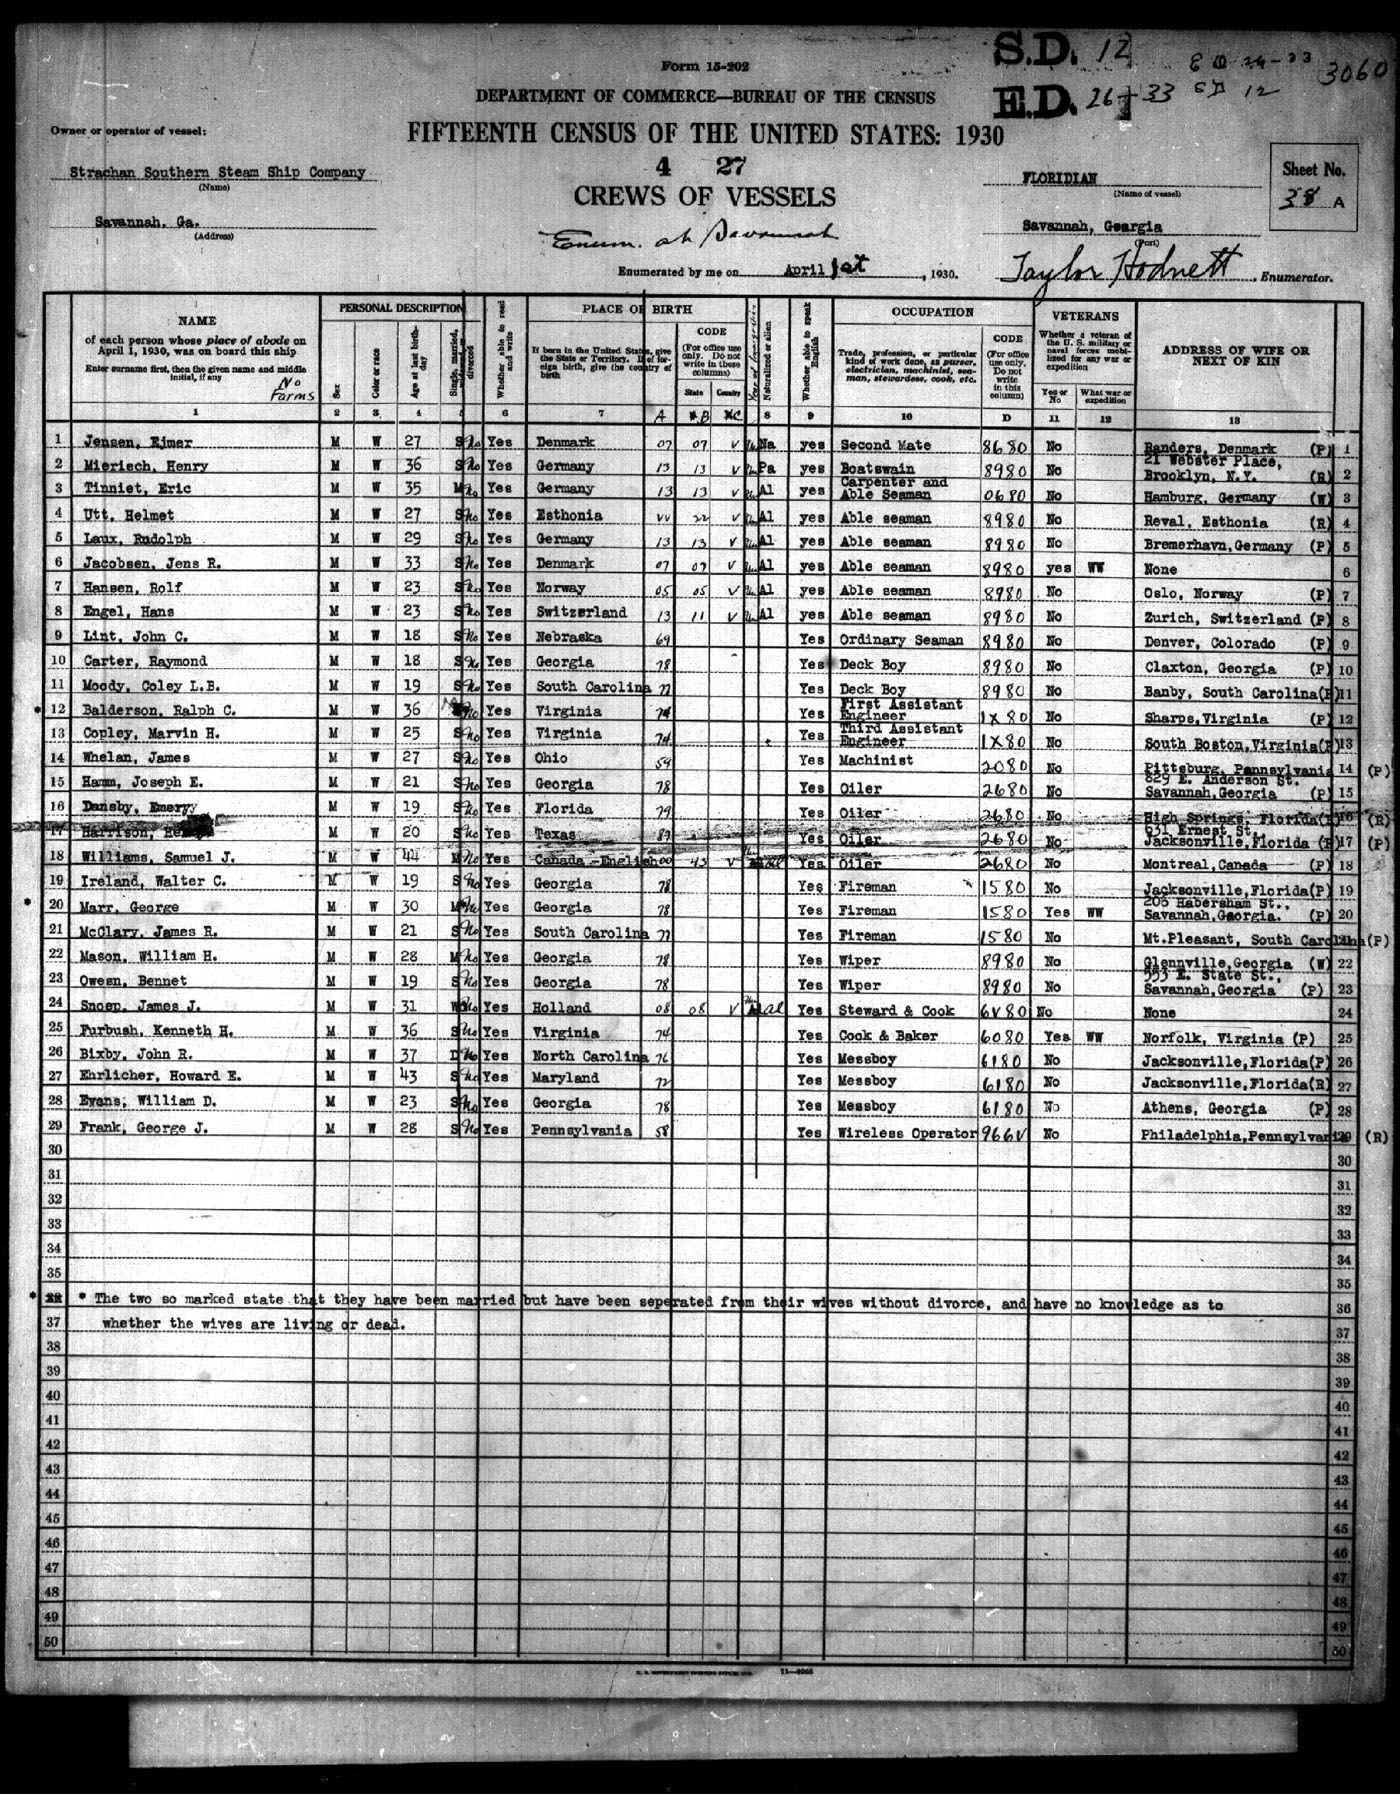 S.D. 12
E D 26-33
3060
Form 15-202
E.D. 26-33
SD 12
DEPARTMENT OF COMMERCE—BUREAU OF THE CENSUS
Owner or operator of vessel:
FIFTEENTH CENSUS OF THE UNITED STATES: 1930
Strachan Southern Steam Ship Company
(Name)
4 27
FLORIDIAN
(Name of vessel)
Sheet No.
A
CREWS OF VESSELS
Savannah, Ga.
(Address)
Enum. at Savannah
Savannah, Georgia
(Port)
Enumerated by me on April 1st, 1930.
Taylor Hodnett, Enumerator.
NAME
of each person whose place of abode on April 1, 1930, was on board this ship
Enter surname first, then the given name and middle initial, if any
No Farms
PERSONAL DESCRIPTION
Sex
Color or race
Age at last birthday
Single, married, divorced
Whether able to read and write
PLACE OF BIRTH
If born in the United States, give the State or Territory. If of foreign birth, give the country of birth
CODE
(For office use only. Do not write in these columns)
State Country
Naturalized or alien
Whether able to speak English
OCCUPATION
Trade, profession, or particular kind of work done, as purser, electrician, machinist, seaman, stewardess, cook, etc.
CODE
(For office use only. Do not write in this column)
VETERANS
Whether a veteran of the U. S. military or naval forces mobilized for any war or expedition
Yes or No
What war or expedition
ADDRESS OF WIFE OR NEXT OF KIN
1 2 3 4 5 6 7 A B C 8 9 10 D 11 12 13
1 Jensen, Ejmer M W 27 S No Yes Denmark 07 07 V Na yes Second Mate 8680 No Randers, Denmark (P) 1
2 Mieriech, Henry M W 36 S No Yes Germany 13 13 V Pa yes Boatswain 8980 No 21 Webster Place, Brooklyn, N.Y. (R) 2
3 Tinniet, Eric M W 35 M No Yes Germany 13 13 V Al yes Carpenter and Able Seaman 0680 No Hamburg, Germany (W) 3
4 Utt, Helmet M W 27 S No Yes Esthonia VV 22 V Al yes Able seaman 8980 No Reval, Esthonia (R) 4
5 Laux, Rudolph M W 29 S No Yes Germany 13 13 V Al yes Able seaman 8980 No Bremerhavn, Germany (P) 5
6 Jacobsen, Jens R. M W 33 S No Yes Denmark 07 07 V Al yes Able seaman 8980 yes WW None 6
7 Hansen, Rolf M W 23 S No Yes Norway 05 05 V Al yes Able seaman 8980 No Oslo, Norway (P) 7
8 Engel, Hans M W 23 S No Yes Switzerland 13 11 V Al yes Able seaman 8980 No Zurich, Switzerland (P) 8
9 Lint, John C. M W 18 S No Yes Nebraska 69 Yes Ordinary Seaman 8980 No Denver, Colorado (P) 9
10 Carter, Raymond M W 18 S No Yes Georgia 78 Yes Deck Boy 8980 No Claxton, Georgia (P) 10
11 Moody, Coley L.B. M W 19 S No Yes South Carolina 77 Yes Deck Boy 8980 No Banby, South Carolina (P) 11
* 12 Balderson, Ralph C. M W 36 No Yes Virginia 74 Yes First Assistant Engineer 1X80 No Sharps, Virginia (P) 12
13 Copley, Marvin H. M W 25 S No Yes Virginia 74 Yes Third Assistant Engineer 1X80 No South Boston, Virginia (P) 13
14 Whelan, James M W 27 S No Yes Ohio 59 Yes Machinist 2080 No Pittsburg, Pennsylvania 14 (P)
15 Hamm, Joseph E. M W 21 S No Yes Georgia 78 Yes Oiler 2680 No 829 E. Anderson St. Savannah, Georgia (P) 15
16 Dansby, Emergy M W 19 S No Yes Florida 79 Yes Oiler 2680 No High Springs, Florida 16 (R)
17 Harrison, M W 20 S No Yes Texas 87 Yes Oiler 2680 No 631 Ernest St., Jacksonville, Florida 17 (P)
18 Williams, Samuel J. M W 44 M No Yes Canada - English 00 43 V al Yes Oiler 2680 No Montreal, Canada (P) 18
19 Ireland, Walter C. M W 19 S No Yes Georgia 78 Yes Fireman 1580 No Jacksonville, Florida (P) 19
* 20 Marr, George M W 30 M No Yes Georgia 78 Yes Fireman 1580 Yes WW 206 Habersham St., Savannah, Georgia. (P) 20
21 McClary, James R. M W 21 S No Yes South Carolina 77 Yes Fireman 1580 No Mt.Pleasant, South Carolina (P)
22 Mason, William H. M W 28 M No Yes Georgia 78 Yes Wiper 8980 No Glennville, Georgia (W) 22
23 Owesn, Bennet M W 19 S No Yes Georgia 78 Yes Wiper 8980 No 553 E. State St., Savannah, Georgia (P) 23
24 Snoep, James J. M W 31 W No Yes Holland 08 08 V al Yes Steward & Cook 6V80 No None 24
25 Furbush, Kenneth H. M W 36 S No Yes Virginia 74 Yes Cook & Baker 6080 Yes WW Norfolk, Virginia (P) 25
26 Bixby, John R. M W 37 D No Yes North Carolina 76 Yes Messboy 6180 No Jacksonville, Florida (P) 26
27 Ehrlicher, Howard E. M W 43 S No Yes Maryland 72 Yes Messboy 6180 No Jacksonville, Florida (R) 27
28 Evans, William D. M W 23 S No Yes Georgia 78 Yes Messboy 6180 No Athens, Georgia (P) 28
29 Frank, George J. M W 28 S No Yes Pennsylvania 58 Yes Wireless Operator 966V No Philadelphia, Pennsylvania 29 (R)
30 30
31 31
32 32
33 33
34 34
35 35
* * The two so marked state that they have been married but have been seperated from their wives without divorce, and have no knowledge as to 36
37 whether the wives are living or dead. 37
38 38
39 39
40 40
41 41
42 42
43 43
44 44
45 45
46 46
47 47
48 48
49 49
50 50